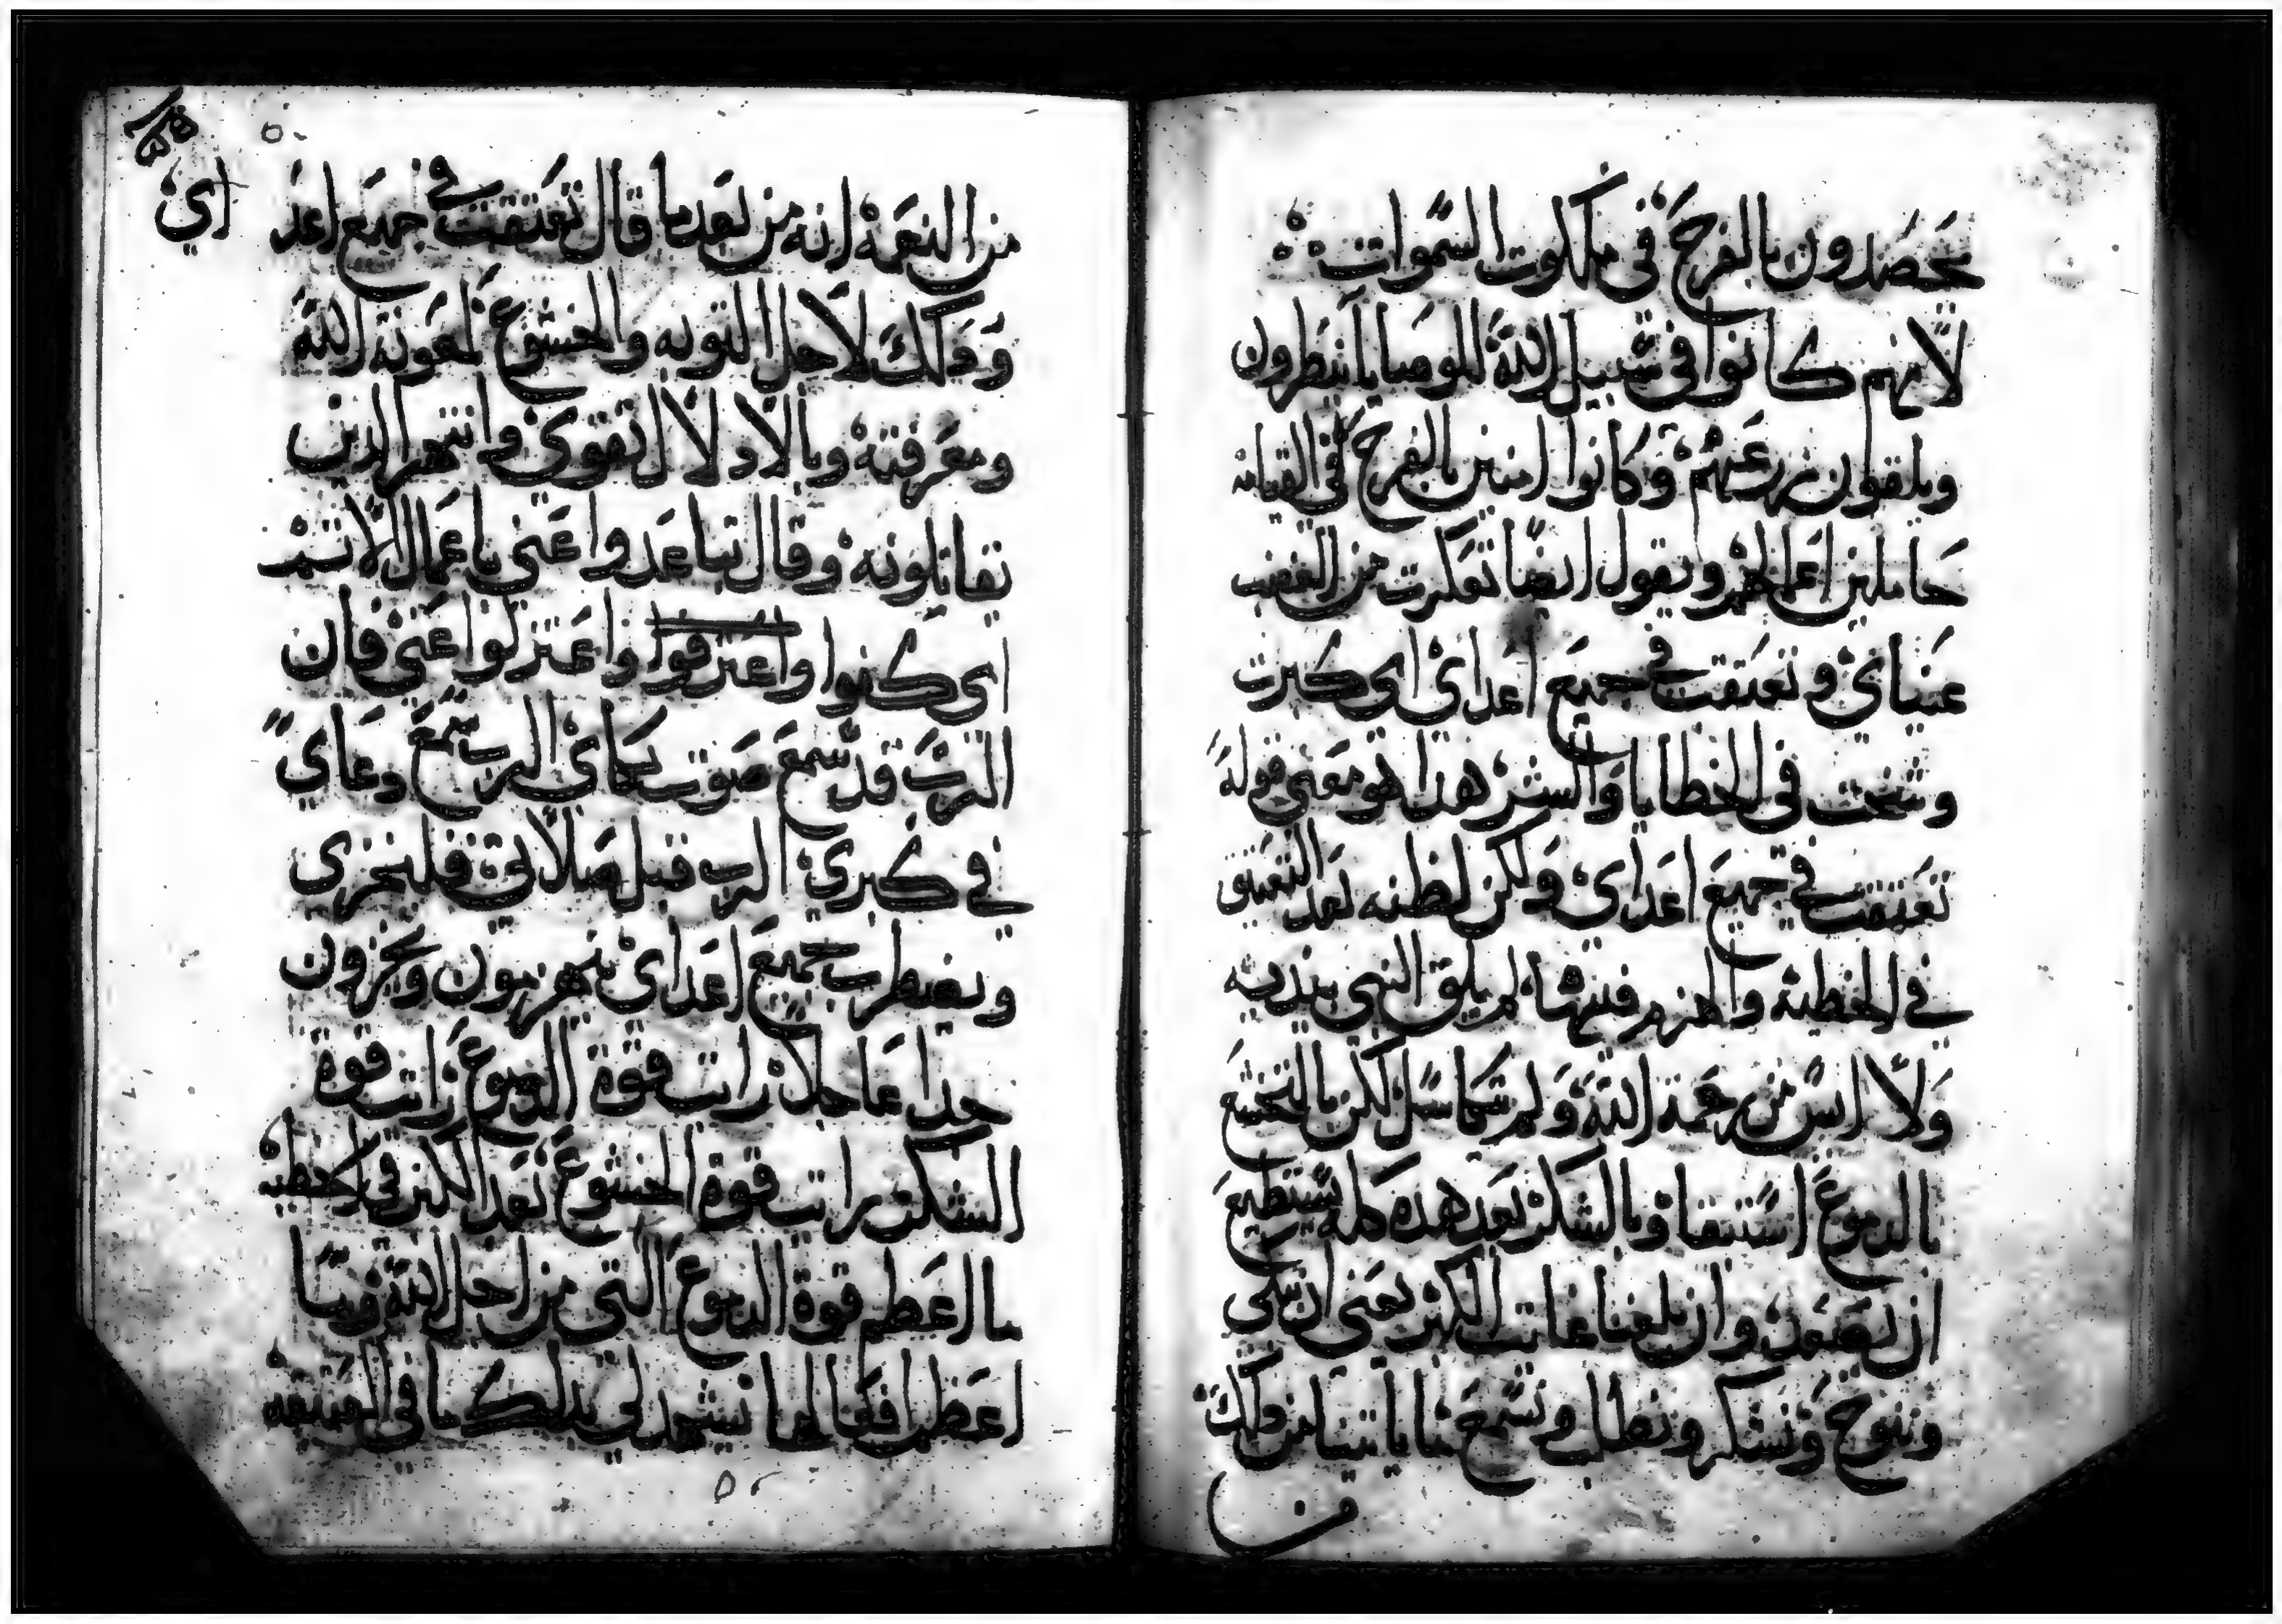 يحصدون بالفرح في ملكوت السموات
لانهم كانوا في سبيل الله للوصايا ينتظرون
ويلقون زرعهم وكانوا امنين بالفرح في القيامة
حاملين اعمالهم ويقول ايضا تعكرت من الغضب
عيناي وتعتقت في جميع اعداي اي كبرت
وشخت في الخطايا والشر هدا هو معنى قوله
تعتقت في جميع اعداي ولكن لظنه بعد التعتيق
في الخطية والهزم فيها لم يلق النبي بيديه
ولا ايس من رحمة الله ولم يتكاسل لكن بالتخشع
بالدموع استشفا وبالشكر بعد هده كله يستطيع
ان يصعد وان بلغنا غايت الكبر يعني ان نبكي
وننوح ونشكر ونطلب ونسمع ما ياتينا من دلك
من النعمة انه من بعد ما قال تعتقت في جميع اعد
اي
ودلك لاجل التوبه والخشوع بمعونة الله
ومعرفته وبالادلال تقوى وانتهر الدين
يقاتلونه وقال تباعدوا عني يا عمال الاتم
اي كفوا واعترفوا واعتزلوا عني فان
الرب قد سمع صوت بكاي الرب سمع دعاي
في كبري الرب قبل صلاتي فليخزى
ويضطرب جميع اعداي ينهزمون ويخزون
جدا عاجلا رايت قوة الدموع رايت قوة
الشكر رايت قوة الخشوع بعد الكبر في الخطية
ما اعظم قوة الدموع التي من اجل الله وما
اعظم افعالها نشهد لي بدلك ما في الحقيقة